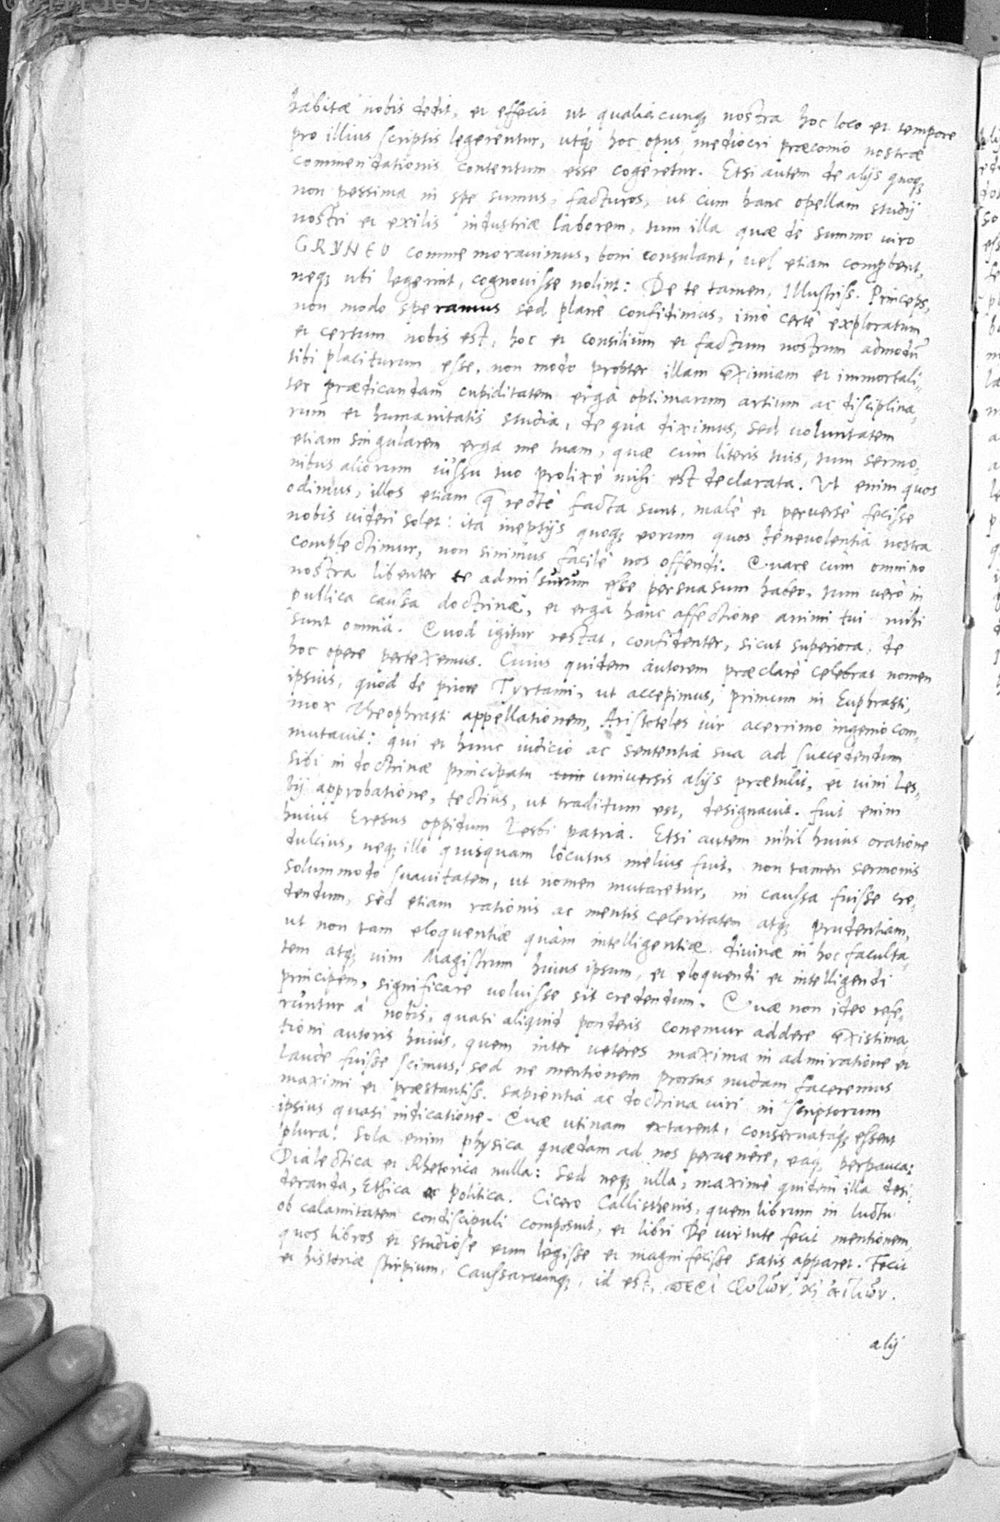 habitae nobis dedit, et effecit ut qualiacunq; nostra hoc loco et tempore
pro illius scriptis legerentur, utq; hoc opus mediocri praeconio nostrae
commendationis contentum esse cogeretur. Etsi autem de alijs quoq;
non pessima in spe sumus, facturos, ut cum hanc opellam studij
nostri et exilis industriae laborem, tum illa quae de summo uiro
GRYNEO commemorauimus, boni consulant, uel etiam comprobent,
neq; ubi legerint, cognouisse nolint: De te tamen, Illustriss. Princeps,
non modo speramus sed planè confidimus, imò certè exploratum
et certum nobis est, hoc et consilium et factum nostrum admodū
tibi placiturum esse, non modo propter illam eximiam et immortali,
ter praedicandam cupiditatem erga optimarum artium ac disciplina,
rum et humanitatis studia, de qua diximus, sed uoluntatem
etiam singularem erga me tuam, quae cùm literis tuis, tum sermo,
nibus aliorum iussu tuo prolixè mihi est declarata. Ut enim quos
odimus, illos etiam q̃ rectè facta sunt, malè et peruersè fecisse
nobis uideri solet: ita ineptijs quoq; eorum quos beneuolentia nostra
complectimur, non sinimus facilè nos offendi. Quare cùm omnino
nostra libenter te admissurum esse persuasum habeo, tum uerò in
publica caussa doctrinae, et erga hanc affectione animi tui nihi
sunt omnia. Quod igitur restat, confidenter, sicut superiora, de
hoc opere pertexemus. Cuius quidem autorem praeclarè celebras nomen
ipsius, quod de priore Tyrtami, ut accepimus, primum in Euphrasti,
mox Theophrasti appellationem, Aristoteles uir acerrimo ingenio com,
mutauit: qui et hunc iudicio ac sententia sua ad succedendum
sibi in doctrinae principatu uniuersis alijs praetulit, et uini Les,
bij approbatione, tectius, ut traditum est, designauit. fuit enim
huius Eresus oppidum Lesbi patria. Etsi autem nihil huius oratione
dulcius, neq; illo quisquam locutus melius fuit, non tamen sermonis
solummodo suauitatem, ut nomen mutaretur, in caussa fuisse cre,
dendum, sed etiam rationis ac mentis celeritatem atq; prudentiam,
ut non tam eloquentiae quàm intelligentiae diuinae in hoc faculta,
tem atq; uim Magistrum huius ipsum, et eloquendi et intelligendi
principem, significare uoluisse sit credendum. Quae non ideo refe,
runtur à nobis, quasi aliquid ponderis conemur addere existima,
tioni autoris huius, quem inter ueteres maxima in admiratione et
laude fuisse scimus, sed ne mentionem prorsus nudam faceremus
maximi et praestantiss. sapientia ac doctrina uiri in scriptorum
ipsius quasi indicatione. Quae utinam extarent, conseruataq; essent
plura! Sola enim physica quaedam ad nos peruenêre, eaq; perpauca:
Dialectica et Rhetorica nulla: Sed neq; ulla, maximè quidem illa desi,
deranda, Ethica et politica. Cicero Callisthenis, quem librum in luctu
ob calamitatem condiscipuli composuit, et libri De uirtute fecit mentionem,
quos libros et studiose eum legisse et magnifecisse satis apparet. Fecit
et historiae stirpium, Caussarumq;, id est, περὶ φυτῶν, κ̀ αἰτιῶν.
alij